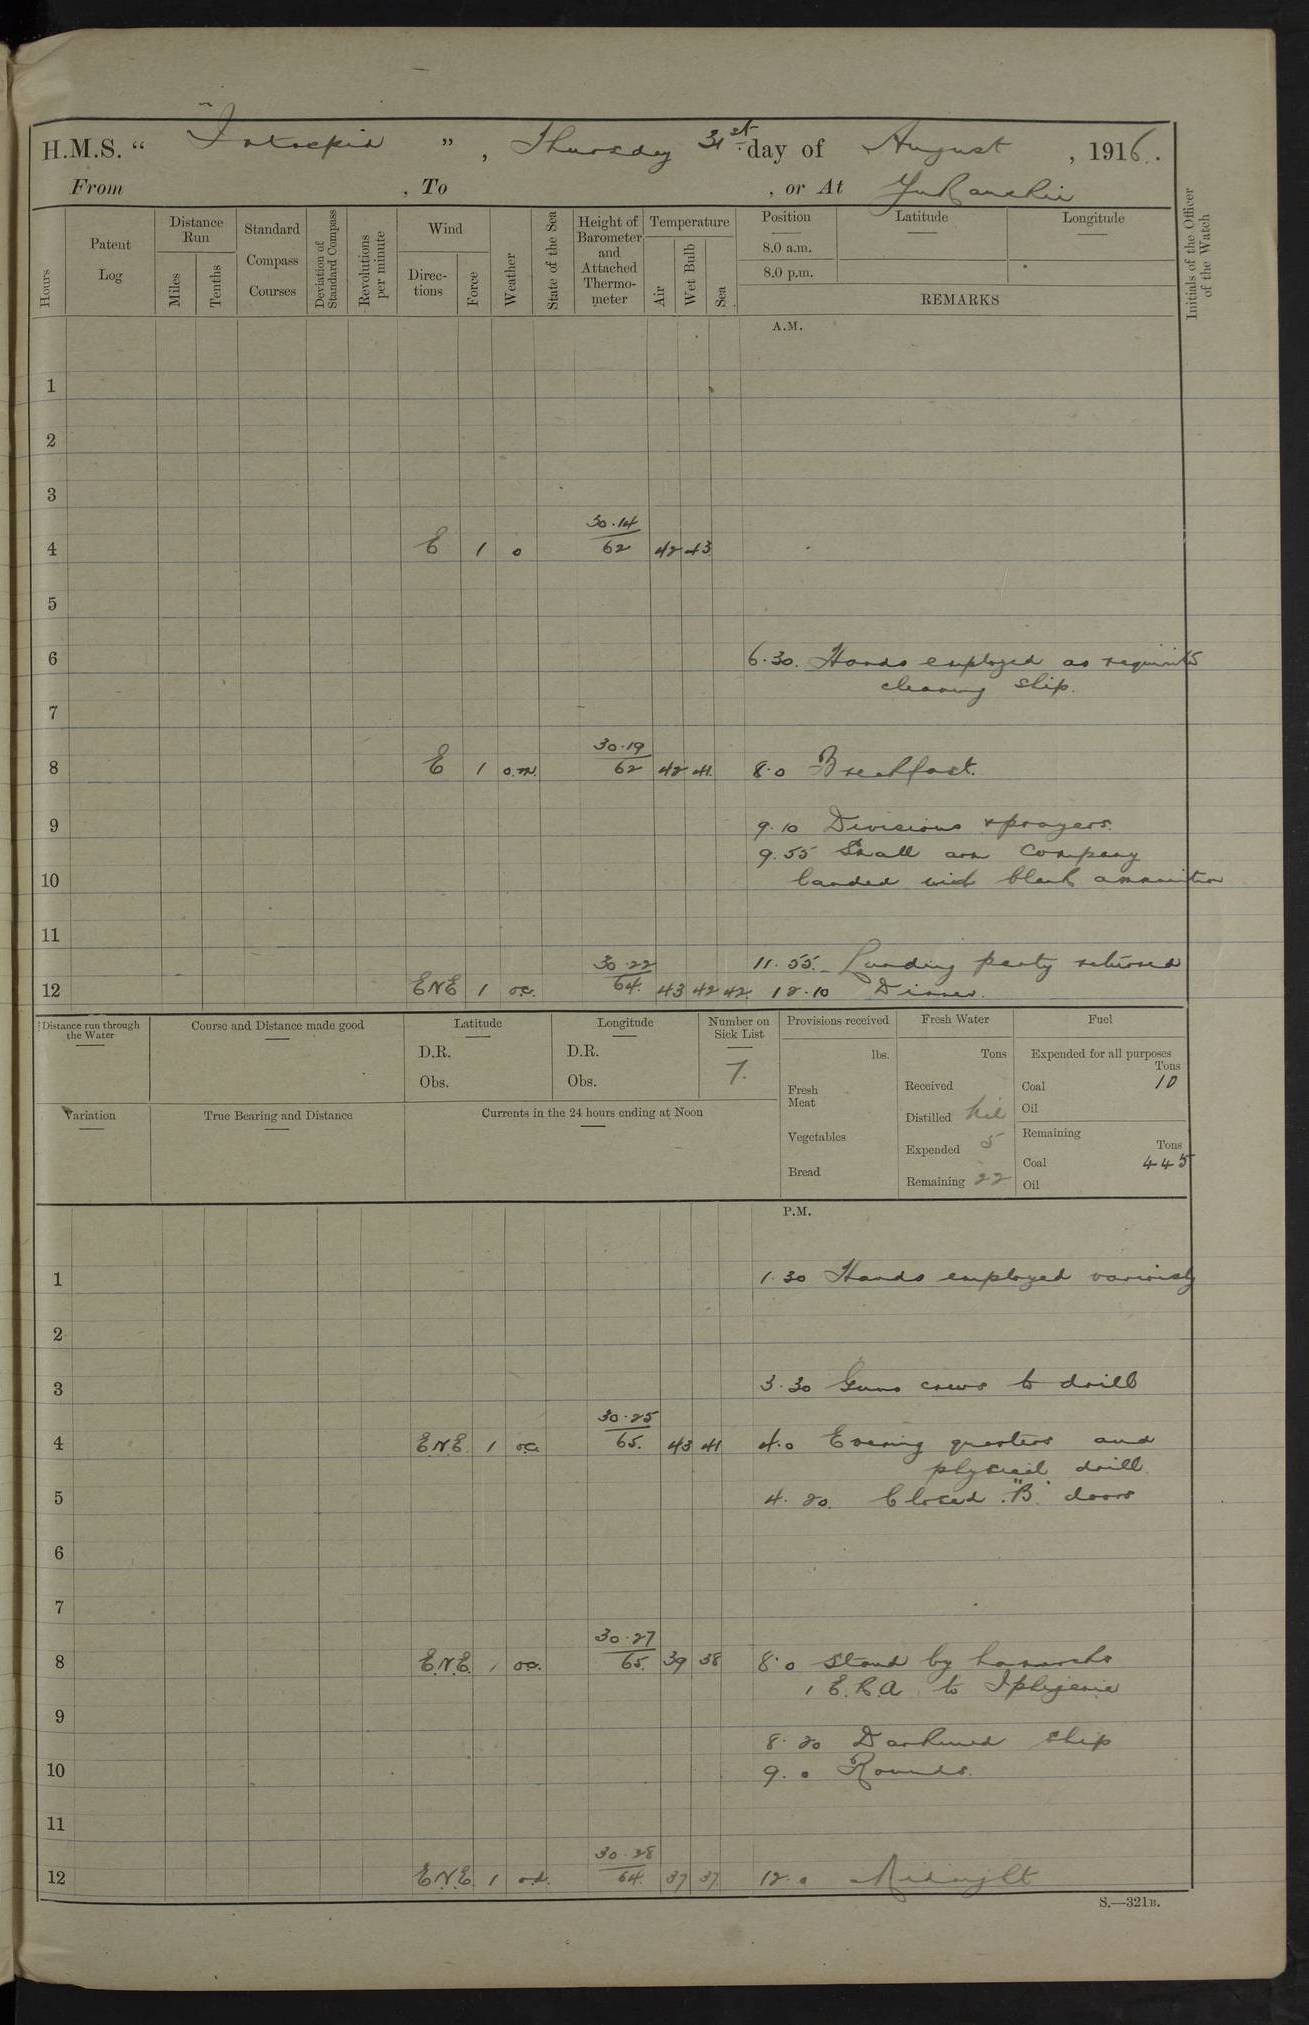 H.M.S. “ Intrepid ” , Thursday 31st day of August , 1916.
From , To , or At Yukanskie
Hours
Patent Log
Distance Run
Miles
Tenths
Standard Compass Courses
Deviation of Standard Compass
Revolutions per minute
Wind
Directions
Force
Weather
State of the Sea
Height of Barometer and Attached Thermometer
Temperature
Air
Wet Bulb
Sea
Position
Latitude
Longitude
8.0 a.m.
8.0 p.m.
REMARKS
Initials of the Officer of the Watch
A.M.
1
2
3
30.14
4 E 1 o 62 42 43
5
6 6.30. Hands employed as requisite
cleaning ship.
7
30.19
8 E 1 o.m. 62 42 41 8.0 Breakfast.
9 9.10 Divisions & prayers.
9.55 Small arm Company
10 landed with blank ammunition
11
30.22 11.55. Landing party returned
12 ENE 1 oc. 64. 43 42 42. 12.10 Dinner.
Distance run through the Water
Course and Distance made good
Latitude
D.R.
Obs.
Longitude
D.R.
Obs.
Number on Sick List
7.
Provisions received
lbs.
Fresh Meat
Vegetables
Bread
Fresh Water
Tons
Received
Distilled Nil
Expended 5
Remaining 22
Fuel
Expended for all purposes
Tons
Coal 10
Oil
Remaining
Tons
Coal 445
Oil
Variation
True Bearing and Distance
Currents in the 24 hours ending at Noon
P.M.
1 1.30 Hands employed variously
2
3 3.30 Guns crews to drill
30.25
4 E.N.E. 1 oc. 65. 43 41 4.0 Evening quarters and
physical drill.
5 4.20. Closed "B" doors
6
7
30.27
8 E.N.E. 1 oc. 65. 39 38 8.0 Stand by hammocks
1 E.R.A. to Iphigenia
9
8.20 Darkened ship
10 9.0 Rounds.
11
30.28
12 E.N.E. 1 o.d. 64. 37 37. 12.0 Midnight
S.—321B.